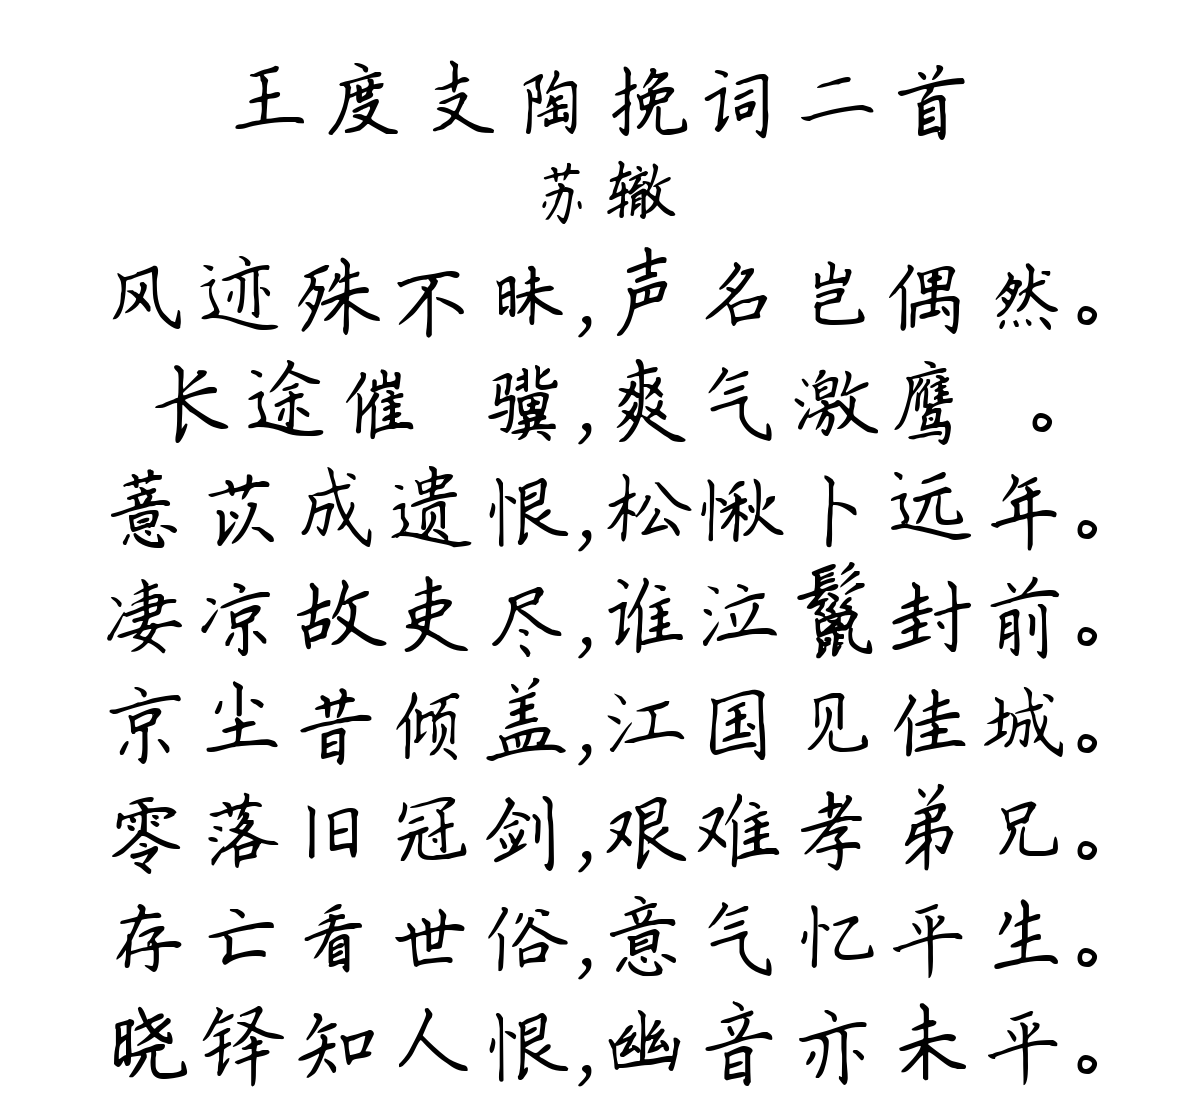 王度支陶挽词二首
苏辙
风迹殊不昧,声名岂偶然。
长途催 骥,爽气激鹰 。
薏苡成遗恨,松楸卜远年。
凄凉故吏尽,谁泣鬣封前。
京尘昔倾盖,江国见佳城。
零落旧冠剑,艰难孝弟兄。
存亡看世俗,意气忆平生。
晓铎知人恨,幽音亦未平。